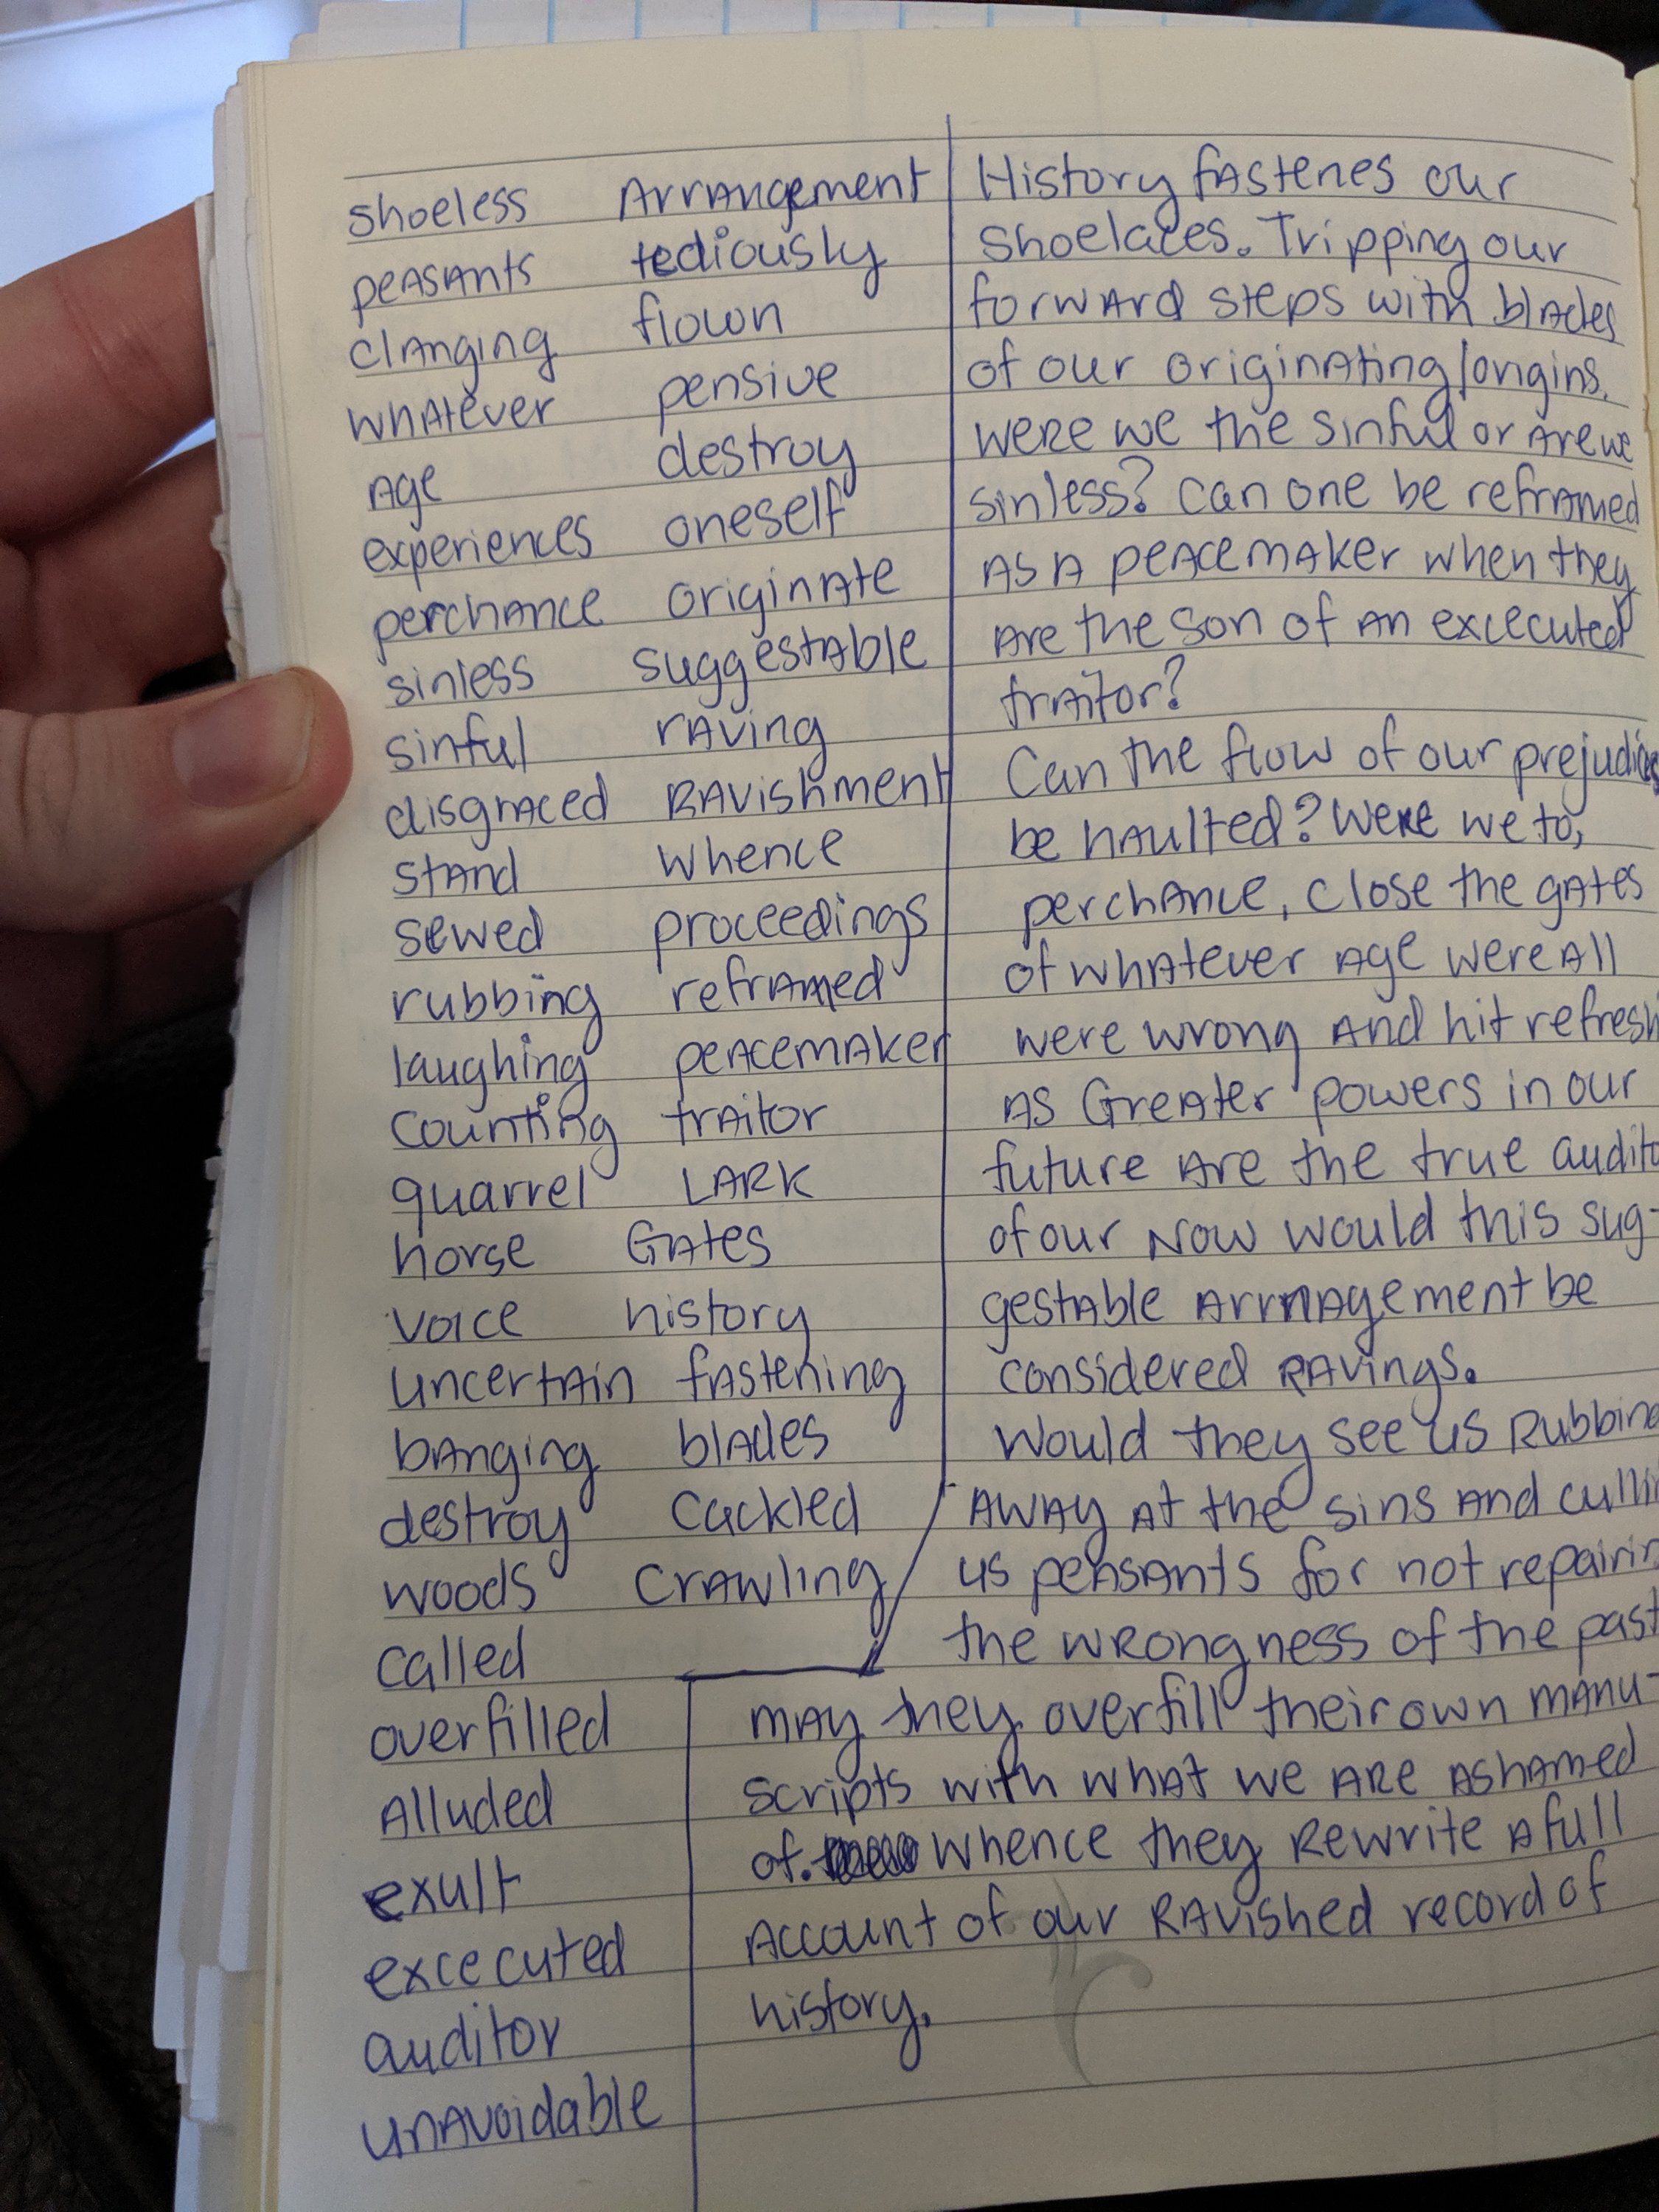 shoeless
peasants
clanging
whatever
age
experiences
perchance
sinless
sinful
disgraced
stand
sewed
rubbing
laughing
counting
quarrel
horse
voice
uncertain
banging
destroy
woods
called
overfilled
Alluded
exult
excecuted
auditor
unavoidable
Arrangement
tediously
flown
pensive
destroy
oneself
originate
suggestable
raving
Ravishment
whence
proceedings
reframed
peacemaker
traitor
LARK
Gates
history
fastening
blades
Cackled
Crawling
History fastenes our
shoelaces. Tripping our
forward steps with blades
of our originating/origins.
were we the sinful or are we
sinless? Can one be reframed
as a peacemaker when they
are the son of an excecuted
traitor?
Can the flow of our prejudices
be haulted? Were we to,
perchance, close the gates
of whatever age were all
were wrong and hit refresh
as Greater powers in our
future are the true
of our Now would this sug-
gestable Arrnagement be
considered Ravings.
Would they see us
away at the sins and
us peasants for not
the wrongness of the past
may they overfill their own manu-
scripts with what we are ashamed
of. Whence they Rewrite a full
Account of our Ravished record of
history.